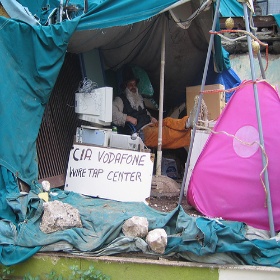 CIA VODAFONE
WIRE TAP CENTER